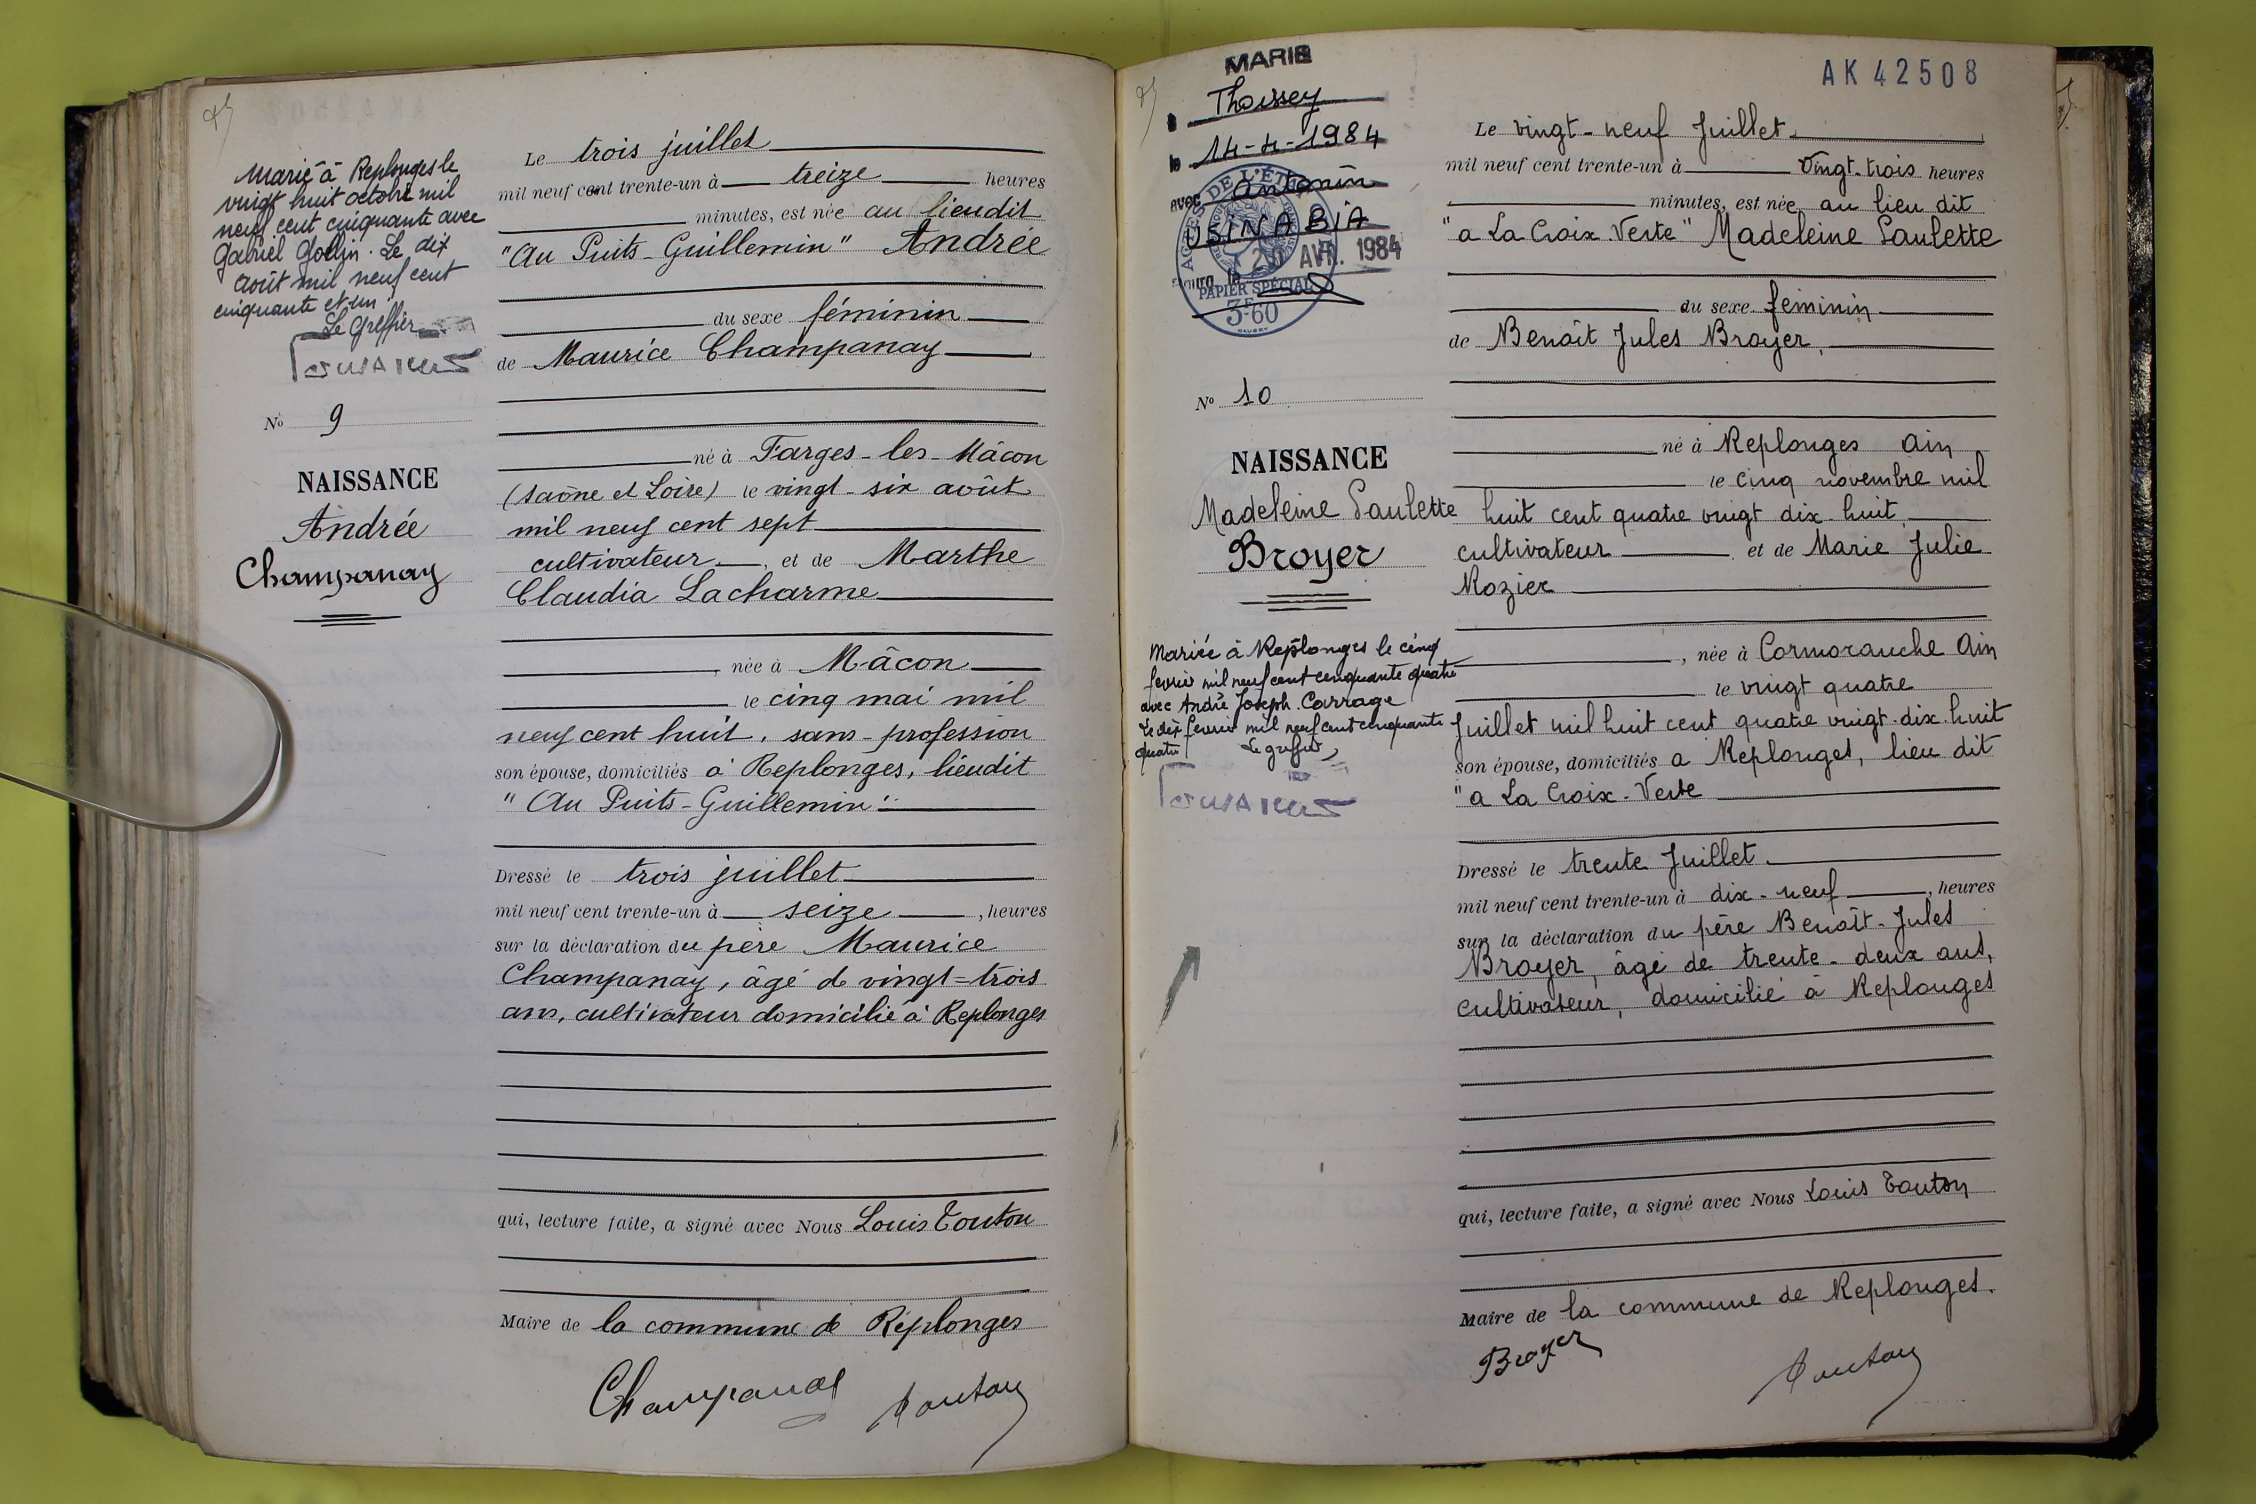 Marié à Replonges le
vingt huit octobre mil
neuf cent cinquante avec
Gabriel Gollin. Le dix
août mil neuf cent
cinquante et un
Le Greffier
No 9
NAISSANCE
Andrée
Champanay
Le trois juillet
mil neuf cent trente-un à treize heures
minutes, est née au lieudit
"Au Puits-Guillemin" Andrée
du sexe féminin
de Maurice Champanay
né à Farges-les-Mâcon
(Saône et Loire) le vingt-six août
mil neuf cent sept
cultivateur, et de Marthe
Claudia Lacharme
née à Mâcon
le cinq mai mil
neuf cent huit, sans-profession
son épouse, domiciliés à Replonges, lieudit
"Au Puits-Guillemin".
Dressé le trois juillet
mil neuf cent trente-un à seize, heures
sur la déclaration du père Maurice
Champanay, âgé de vingt-trois
ans, cultivateur domicilié à Replonges
qui, lecture faite, a signé avec Nous Louis Touton
Maire de la commune de Replonges
Champanay Touton
MARIE
Thoissey
le 14-4-1984
avec Antonin
USINABIA
20 AVR. 1984
ACTES DE L'ÉTAT
PAPIER SPÉCIAL
3F60
No 10
NAISSANCE
Madeleine Paulette
Broyer
Mariée à Replonges le cinq
fevrier mil neuf cent cinquante quatre
avec André Joseph Carrage
Le dix fevrier mil neuf cent cinquante
quatre Le greffier,
AK 42508
Le vingt-neuf Juillet
mil neuf cent trente-un à vingt-trois heures
minutes, est née au lieu dit
"a La Croix-Verte" Madeleine Paulette
du sexe féminin
de Benoît Jules Broyer,
né à Replonges Ain
le cinq novembre mil
huit cent quatre vingt dix-huit,
cultivateur, et de Marie Julie
Rozier
, née à Cormoranche Ain
le vingt quatre
Juillet mil huit cent quatre vingt-dix-huit
son épouse, domiciliés a Replonges, lieu dit
"a La Croix-Verte
Dressé le trente Juillet
mil neuf cent trente-un à dix-neuf, heures
sur la déclaration du père Benoît-Jules
Broyer, âgé de trente-deux ans,
cultivateur, domicilié à Replonges
qui, lecture faite, a signé avec Nous Louis Touton
Maire de la commune de Replonges.
Broyer Touton